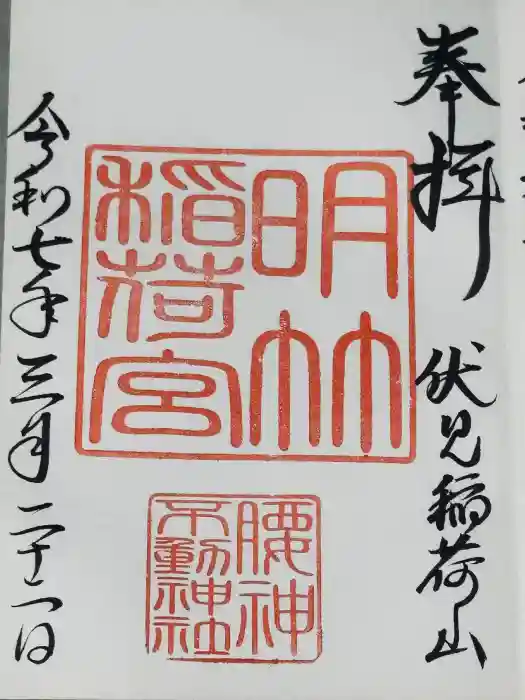 奉拝
伏見稲荷山
明竹
稲荷宮
腰神
不動神社
令和七年三月二十一日